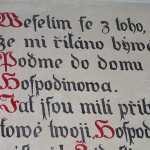 Weselim se z toho,
že mi říkáno býwá
Podme do domu
Hospodinowa.
Jak jsou milí příb
tkowé twoji, Hospod